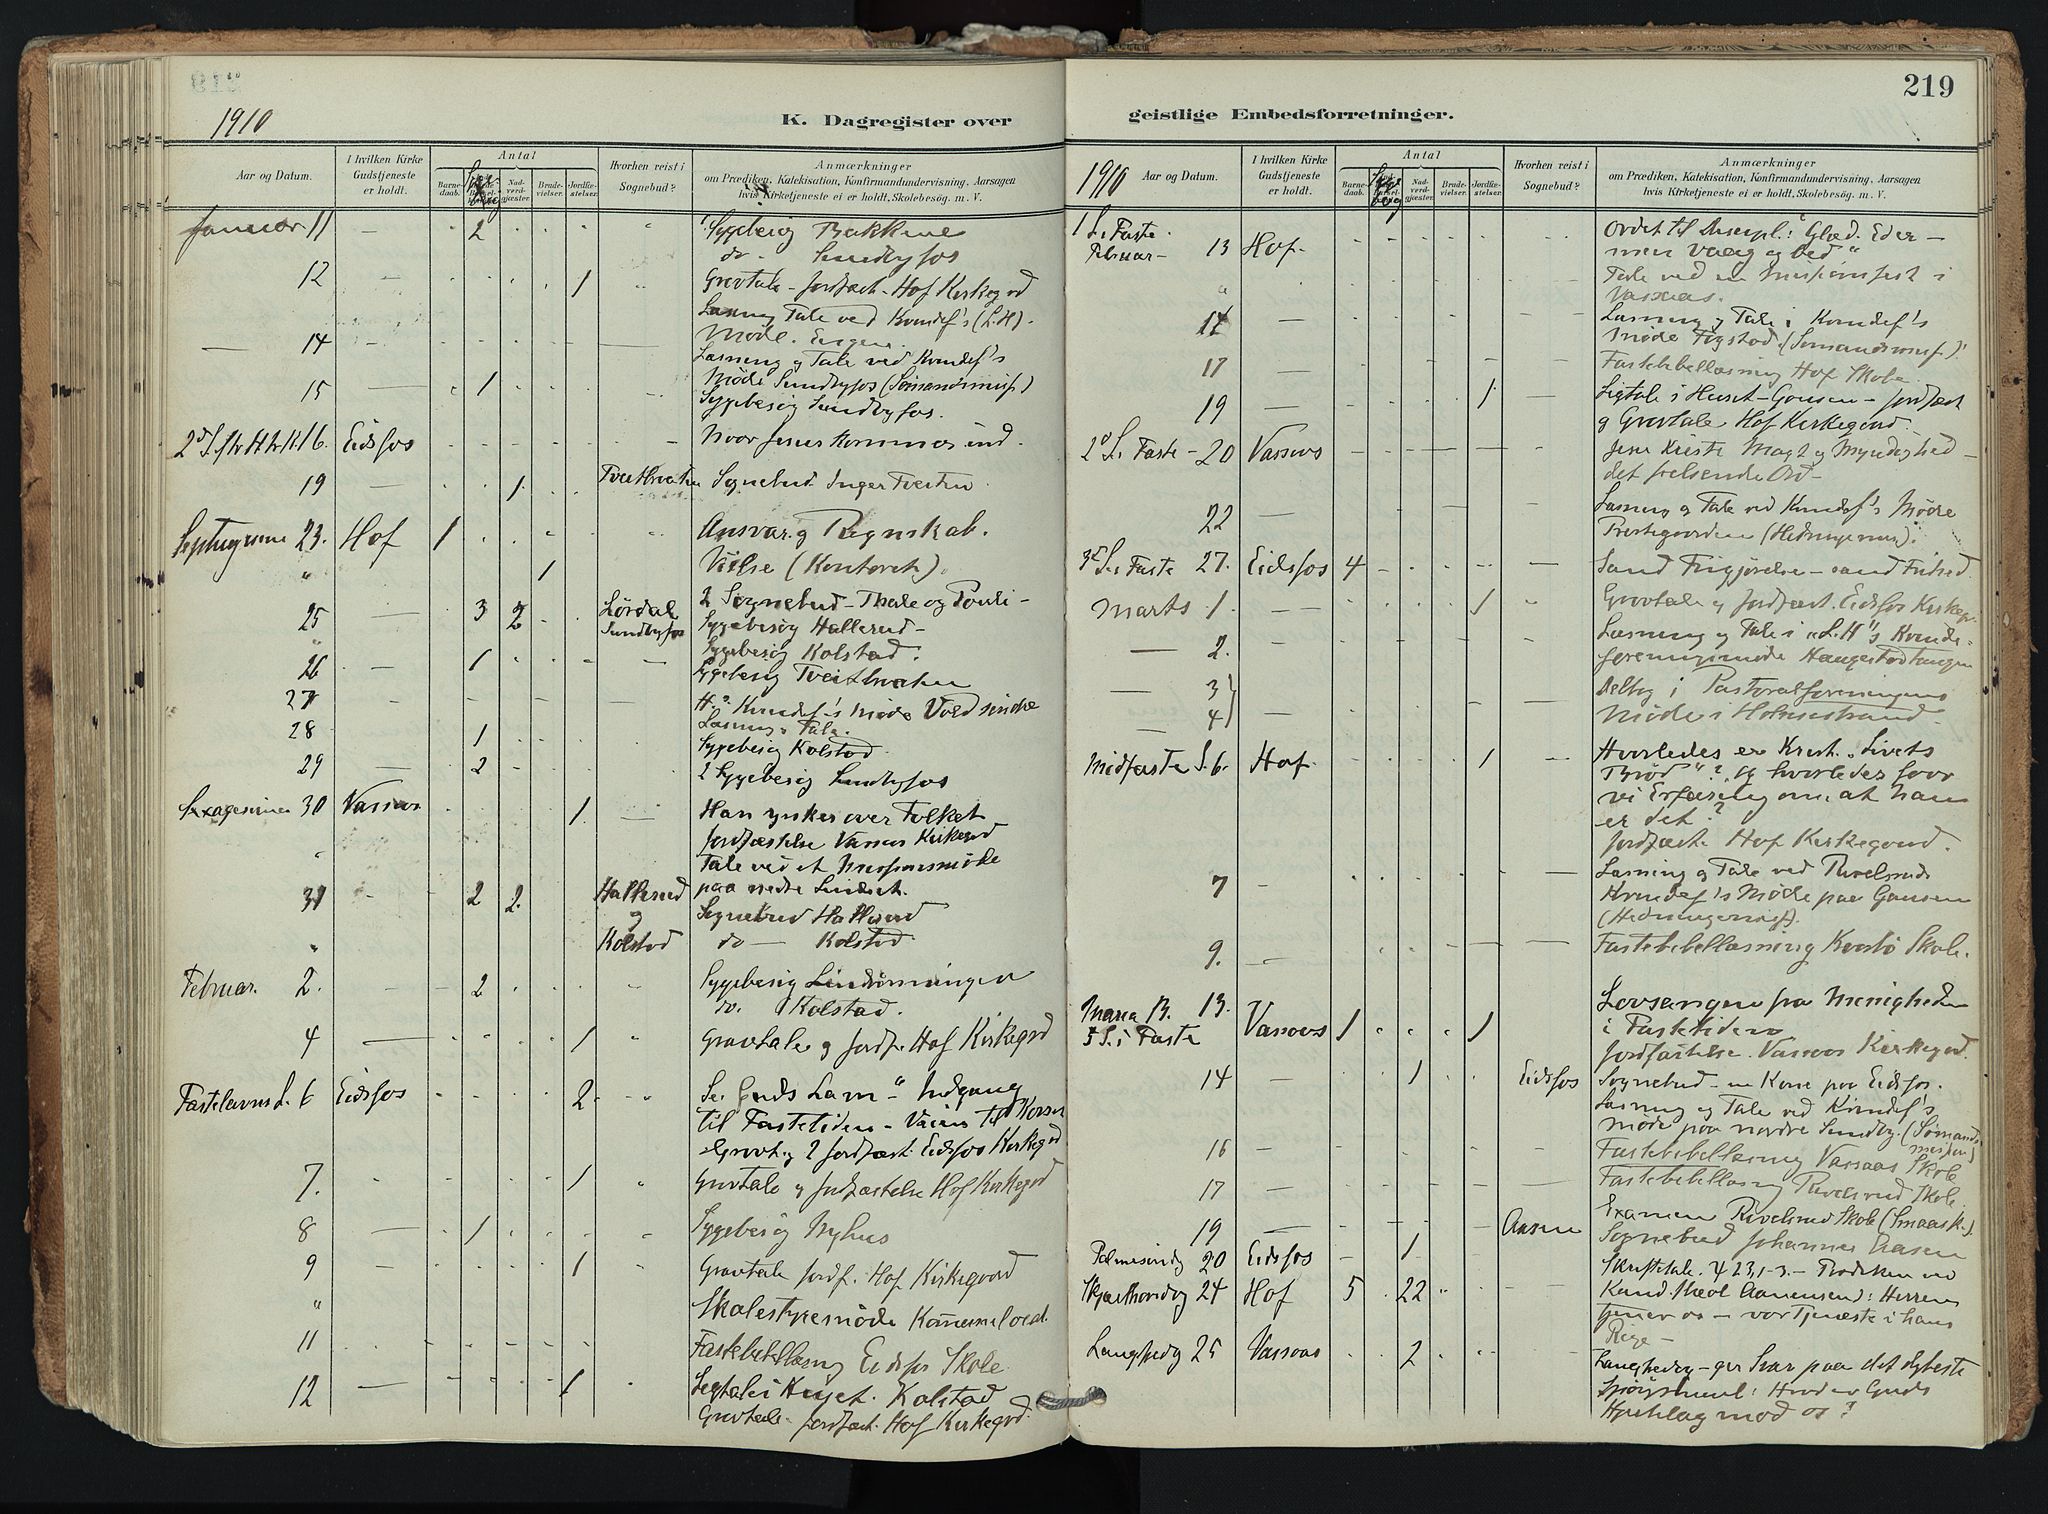 219
1910
K. Dagregister over
geistlige Embedsforretninger.
Aar og Datum.
I hvilken Kirke Gudstjeneste er holdt.
Antal
Barnedaab.
Nadverdgjæster
Brudevielser.
Jordfæstelser.
Hvorhen reist i Sognebud?
Anmærkninger
om Prædiken, Katekisation, Konfirmandundervisning, Aarsagen
hvis Kirketjeneste ei er holdt, Skolebesøg. m. V.
Januar 11 - 2 Sygebesøg Bakkene
do - Sundbyfos
12 - 1 Gravtale - Jordfæst. Hof Kirkegrd
Læsning Tale ved Kvindef's (L.H).
14 Møde. Engene
Læsning og Tale ved Kvindef's
15 - 1 Møde Sundbyfos (Sømandsmis.)
Sygebesøg Sundbyfos.
16. Eidsfos Hvor Jesus kommer ind.
19 - 1. Sognebud Inger Tveiten
Septuagesima 23. Hof 1 Ansvar og Regnskab.
" 1 Vielse (Kontoret).
25 - 3 2 Lørdal Sundbyfos 2 Sognebud - Thale og Pouli -
Sygebesøg Hallerud -
26 - 1 Sygebesøg Kolstad.
Sygebesøg
27 Kvindef's Møde Vold søndre
Læsning, Tale.
28 1 Sygebesøg Kolstad
29 - 2 2 Sygebesøg Sundbyfos
Sexagesima 30 Vassaas 1. - Han ynkes over Folket
Jordfæstelse Vassaas Kirkegrd
Tale ved et Missionsmøde
paa nedre
31 - 2 2. Hallerud og Kolstad
Sognebud Hallerud
do - Kolstad
Februar. 2. - 2 Sygebesøg
do. Kolstad.
4 - 1 Gravtale og Jordf. Hof Kirkegrd
Fastelavns S. 6 Eidsfos 2. Se Guds Lam - Indgang
til Fastetiden - Veien til Korset
Gravt. og 2 Jordfæst. Eidsfos Kirkegrd
7. 1 Gravtale og Jordfæstelse Hof Kirkegrd
8 - 1 Sygebesøg Nyhus
9 1 Gravtale Jordf. Hof Kirkegaard
" Skolestyremøde Kommunelocal.
11 Fastebibellæsning Eidsfos Skole
12 - 1 Ligtale i Huset. Kolstad
Gravtale. Jordfæst. Hof Kirkegrd.
1910
Aar og Datum.
I hvilken Kirke Gudstjeneste er holdt.
Antal
Barnedaab.
Nadverdgjæster
Brudevielser.
Jordfæstelser.
Hvorhen reist i Sognebud?
Anmærkninger
om Prædiken, Katekisation, Konfirmandundervisning, Aarsagen
hvis Kirketjeneste ei er holdt, Skolebesøg. m. V.
1 S. i Faste. Februar - 13 Hof. Ordet til Discipl.: Glæd Eder -
men vaag og bed"
" Tale ved en Missionsfest i
Vassaas.
14 - Læsning og Tale i Kvindef's
Møde Fogstad (Sømandsmis.).
17 - Fastebibellæsning Hof Skole
19 - 1. Ligtale i Huset - Gausen - Jordfæst
og Gravtale Hof Kirkegaard.
2d S. i Faste - 20 Vassaas Jesu Kristi Magt og Myndighed -
det frelsende Ord -
22 - Læsning og Tale ved Kvindef's Møde
Prestegaarden (Hedningemis).
3d S. i Faste 27. Eidsfos 4 Sand Frigjørelse - sand Frihed
Marts 1. - 1 Gravtale og Jordfæst. Eidsfos Kirkeg.
- 2. Læsning og Tale i "L.H"s Kvinde-
foreningsmøde Haugestadhaugen
- 3
- 4 Deltog i Pastoralforeningens
Møde i Holmestrand -
Midfaste S. 6. Hof. 1 Hvorledes er Krist. "Livets
Brød"? og hvorledes faar
vi Erfaring om, at han
er det?
Jordfæst. Hof Kirkegaard.
7 - Læsning og Tale ved
Kvindef's Møde paa Gausen
(Hedningemis).
9. - Fastebibellæsning Skole.
Maria B. 13. 5 S. i Faste Vassaas 1 1 Lovsangen fra Menigheden
i Fastetiden
Jordfæstelse. Vassaas Kirkegrd.
14 - 1 Eidsfos Sognebud - en Kone paa Eidsfos.
Læsning og Tale ved Kvindef's
Møde paa nordre Sundby. (Sømandsmission)
16 - Fastebibellæsning Vassaas Skole
17 - Fastebibellæsning Skole.
19 - Aasen Examen Skole (Smaask.)
Sognebud Johannes Aasen
Palmesøndag 20 Eidsfos - 1
Skjærthorsdag 24 Hof 5 22 Skriftetale. ψ 23,1-3. - Prædiken ved
Kand. : Herrens
tjener os - vor Tjeneste i hans
Rige -
Langfredag 25 Vassaas 2 Langfredag - gir Svar paa det dybeste
Spørgsmaal: Hvad er Guds
Hjertelag mod os?